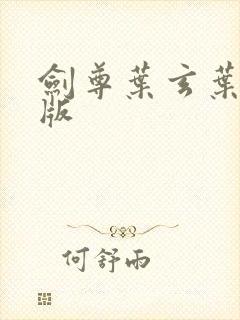 劍尊葉玄葉
版
何舒雨